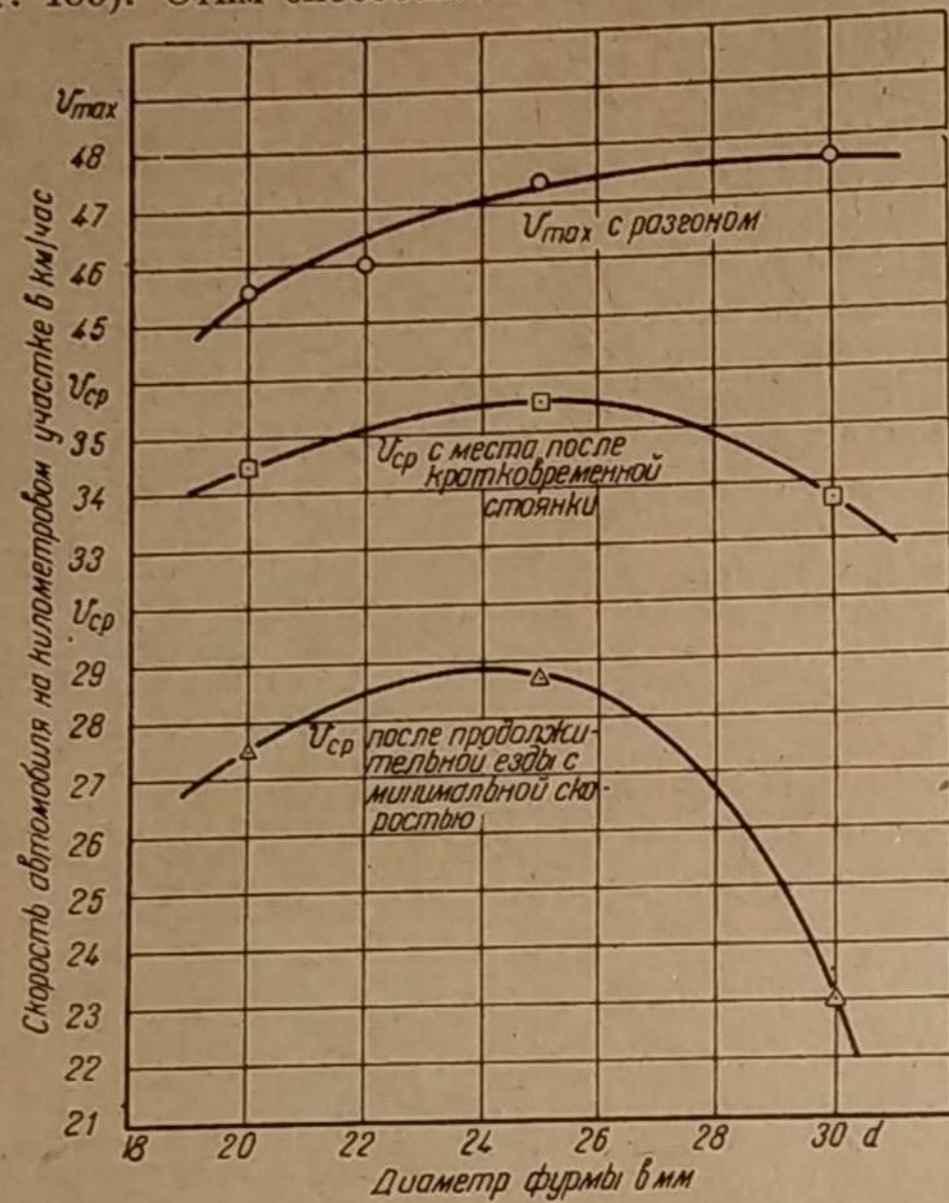 Скорость автомобиля на километровом участке в км/час
υmax
48
47
46
45
υср
35
34
33
υср
29
28
27
26
25
24
23
22
21
υmax с разгоном
υср с места после
кратковременной
стоянки
υср после продолжи-
тельной езды с
минимальной ско-
ростью
18 20 22 24 26 28 30 d
Диаметр фурмы в мм